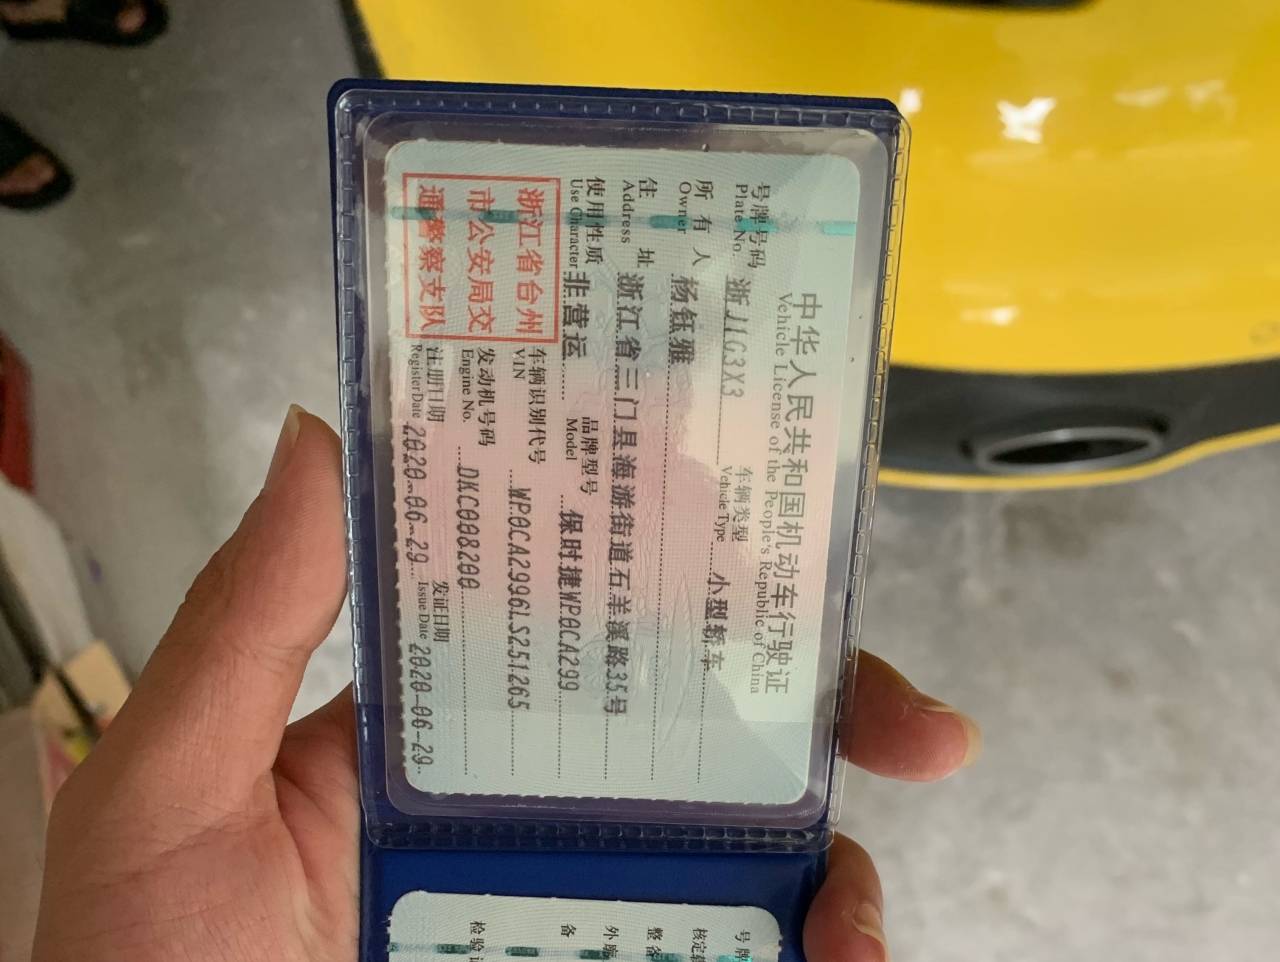 中华人民共和国机动车行驶证
Vehicle License of the People's Republic of China
号牌号码 浙J1G3X3 车辆类型 小型轿车
Plate No. Vehicle Type
所有人 杨钰雅
Owner
住址 浙江省三门县海游街道石羊溪路35号
Address
使用性质 非营运 品牌型号 保时捷WP0CA299
Use Character Model
浙江省台州
市公安局交
通警察支队
车辆识别代号 WP0CA2996LS251265
VIN
发动机号码 DKC008200
Engine No.
注册日期 2020-06-29 发证日期 2020-06-29
Register Date Issue Date
号牌
核定
整备
外廓
备
检验